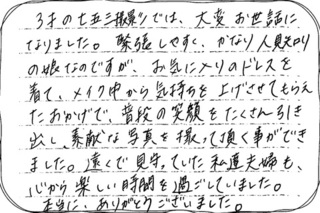 3才の七五三撮影では、大変お世話に
なりました。緊張しやすく、かなり人見知り
の娘なのですが、お気に入りのドレスを
着て、メイク中から気持ちを上げさせてもらえ
たおかげで、普段の笑顔をたくさん引き
出し、素敵な写真を撮って頂く事ができ
ました。遠くで見守っていた私達夫婦も、
心から楽しい時間を過ごしていました。
本当に、ありがとうございました。